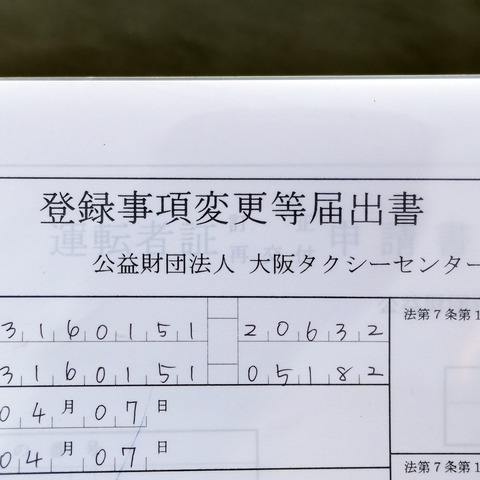 登録事項変更等届出書
運転者証 訂正 再交付 申請書
公益財団法人 大阪タクシーセンター
3160151 20632 法第7条第1
3160151 05182
04月07日
04月07日
法第7条第1